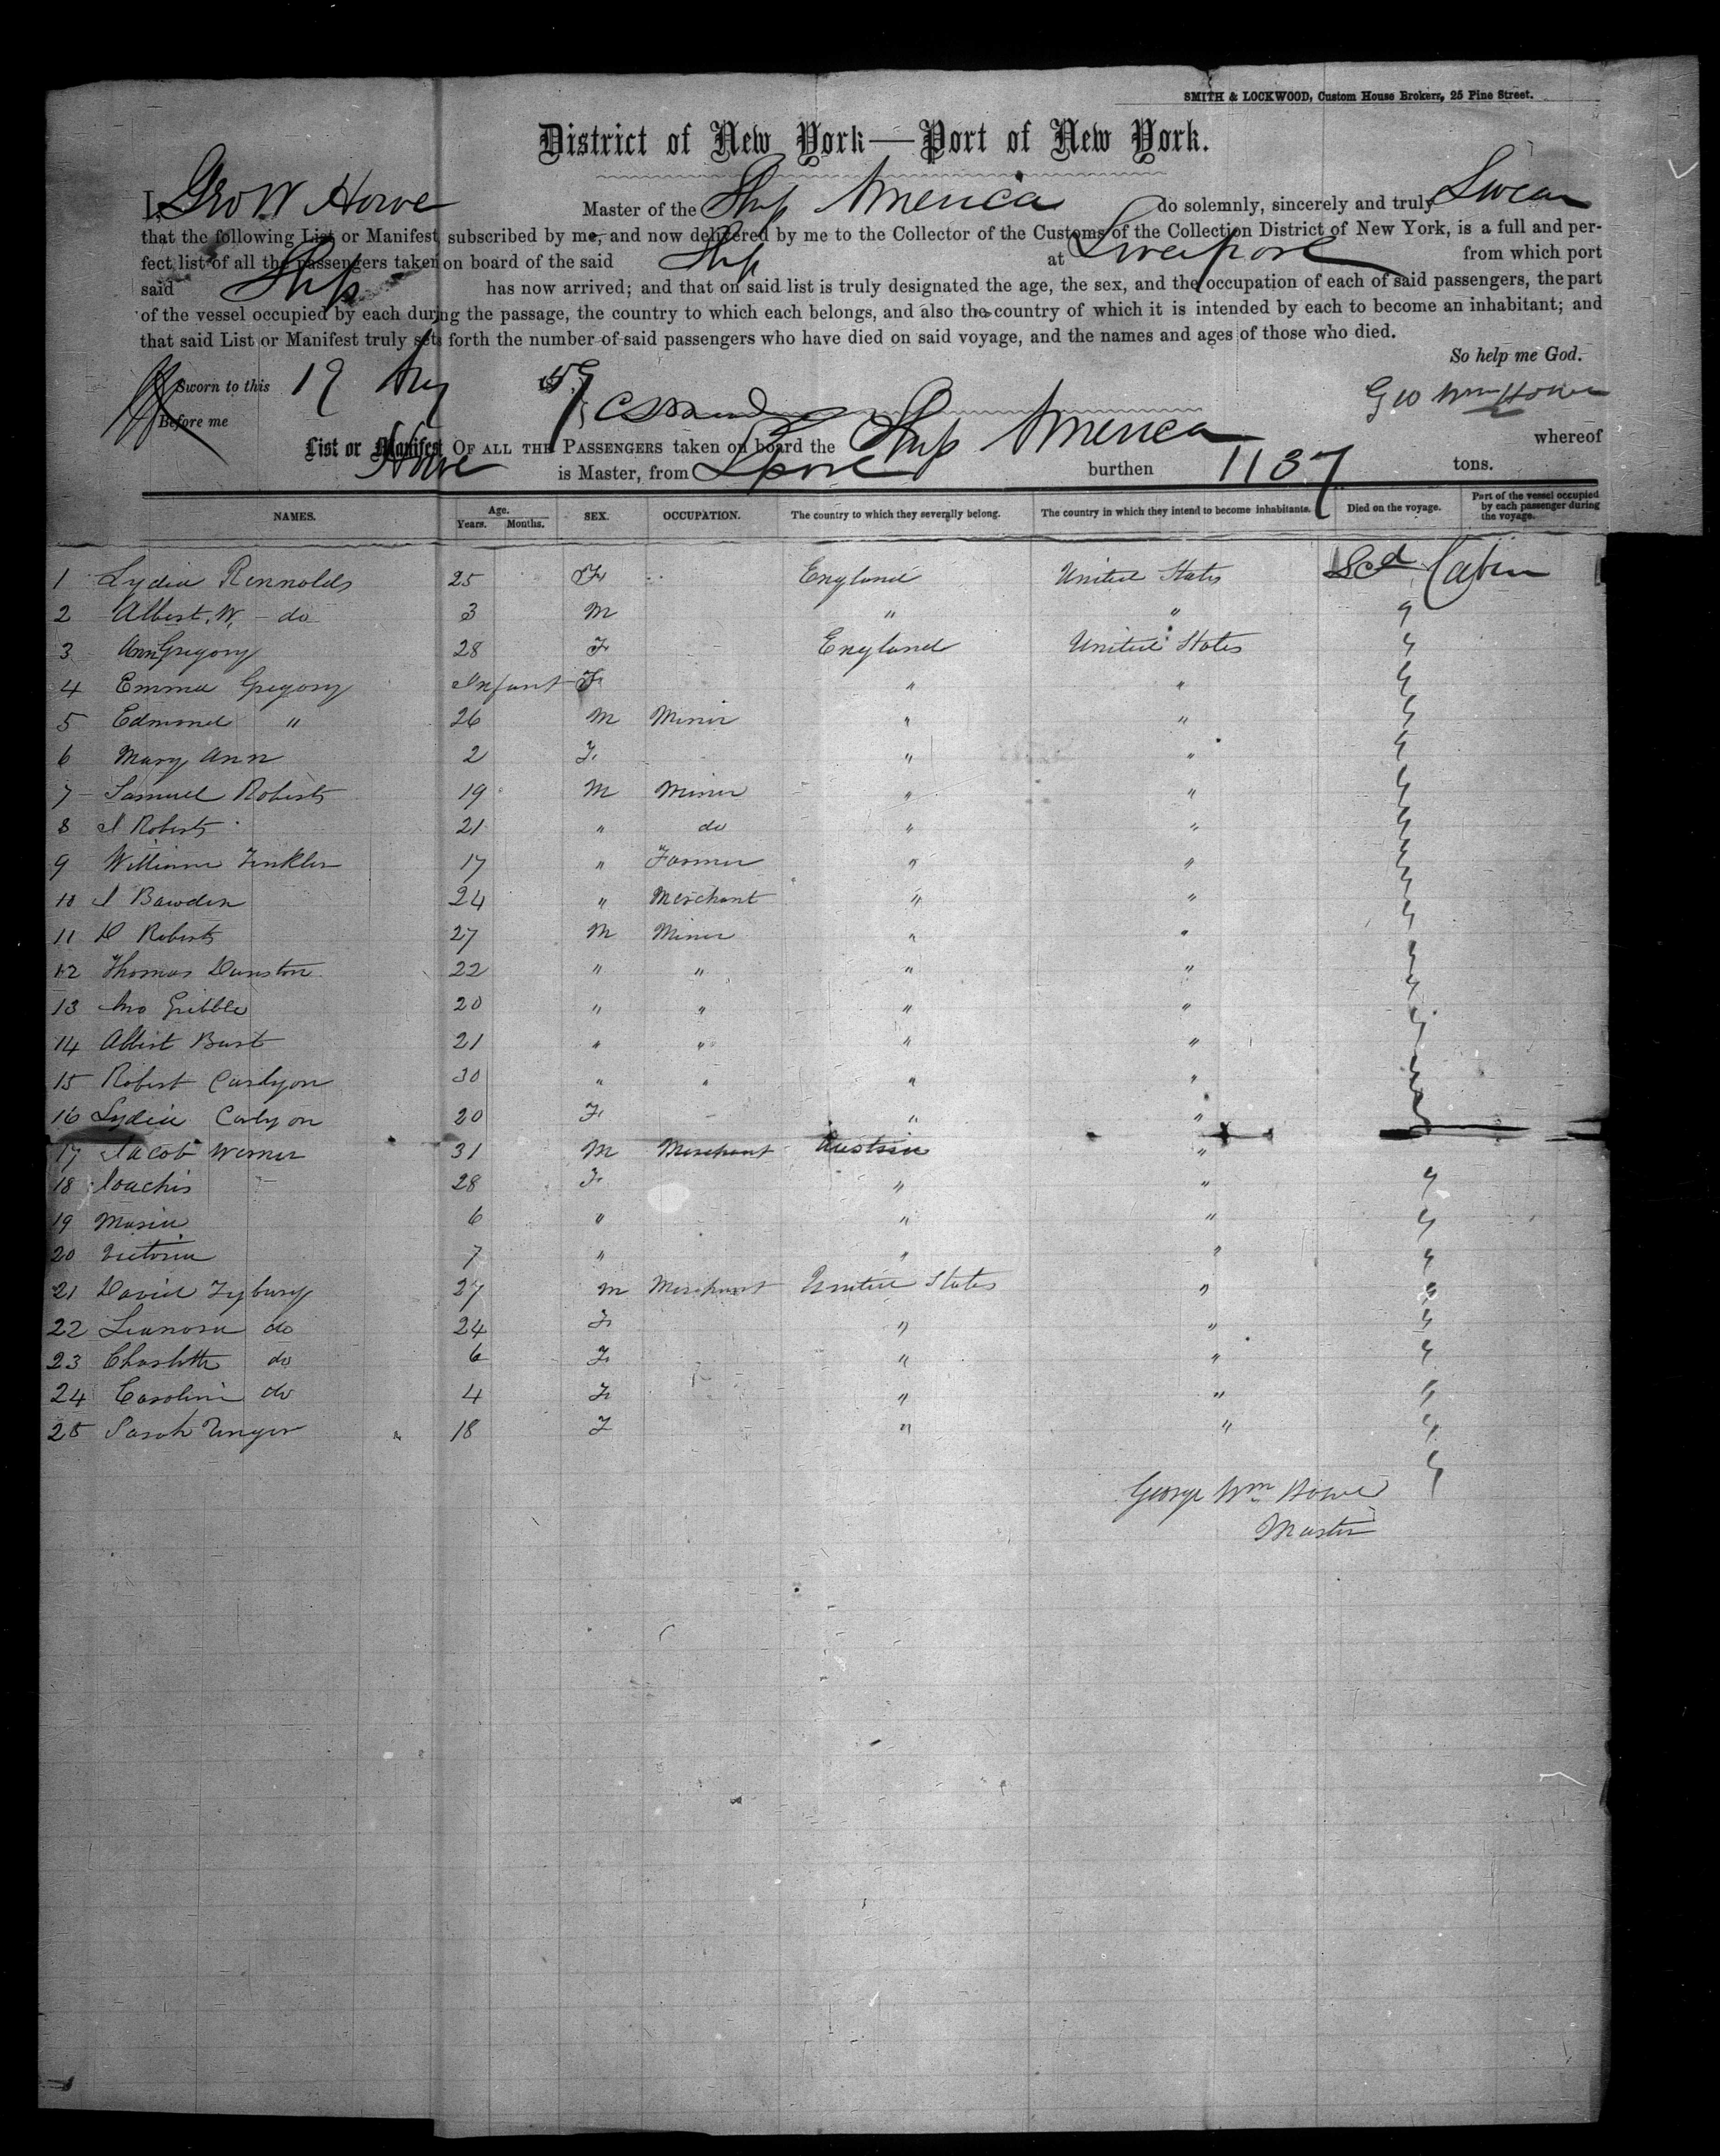 SMITH & LOCKWOOD, Custom House Brokers, 25 Pine Street.
District of New York—Port of New York.
I, Geo W Howe Master of the Ship America do solemnly, sincerely and truly Swear
that the following List or Manifest, subscribed by me, and now delivered by me to the Collector of the Customs of the Collection District of New York, is a full and per-
fect list of all the passengers taken on board of the said Ship at Liverpool from which port
said Ship has now arrived; and that on said list is truly designated the age, the sex, and the occupation of each of said passengers, the part
of the vessel occupied by each during the passage, the country to which each belongs, and also the country of which it is intended by each to become an inhabitant; and
that said List or Manifest truly sets forth the number of said passengers who have died on said voyage, and the names and ages of those who died.
So help me God.
Sworn to this 19 59 Geo Wm Howe
Before me
List or Manifest OF ALL THE PASSENGERS taken on board the Ship America whereof
Howe is Master, from Lpool burthen 1137 tons.
NAMES. Age. Years. Months. SEX. OCCUPATION. The country to which they severally belong. The country in which they intend to become inhabitants. Died on the voyage. Part of the vessel occupied by each passenger during the voyage.
1 Lydia Rennolds 25 F England United States 2cd Cabin
2 Albert. W. do 3 M " " "
3 Ann Gregory 28 F England United States "
4 Emma Gregory Infant F " " "
5 Edmond " 26 M Miner " " "
6 Mary Ann 2 F " " "
7 Samuel Roberts 19 M Miner " " "
8 J Roberts 21 " do " " "
9 William Tinkler 17 " Farmer " " "
10 J Bawden 24 " Merchant " " "
11 D Roberts 27 M Miner " " "
12 Thomas Dunston 22 " " " " "
13 Jno Gribble 20 " " " " "
14 Albert Burt 21 " " " " "
15 Robert Carlyon 30 " " " " "
16 Lydia Carlyon 20 F " " "
17 Jacob Werner 31 M Merchant Austria "
18 28 F " " "
19 Maria 6 " " " "
20 Victoria 7 " " " "
21 David 27 M Merchant United States " "
22 Leanora do 24 F " " "
23 Charlotte do 6 F " " "
24 Caroline do 4 F " " "
25 Sarah Unger 18 F " " "
George Wm Howe
Master